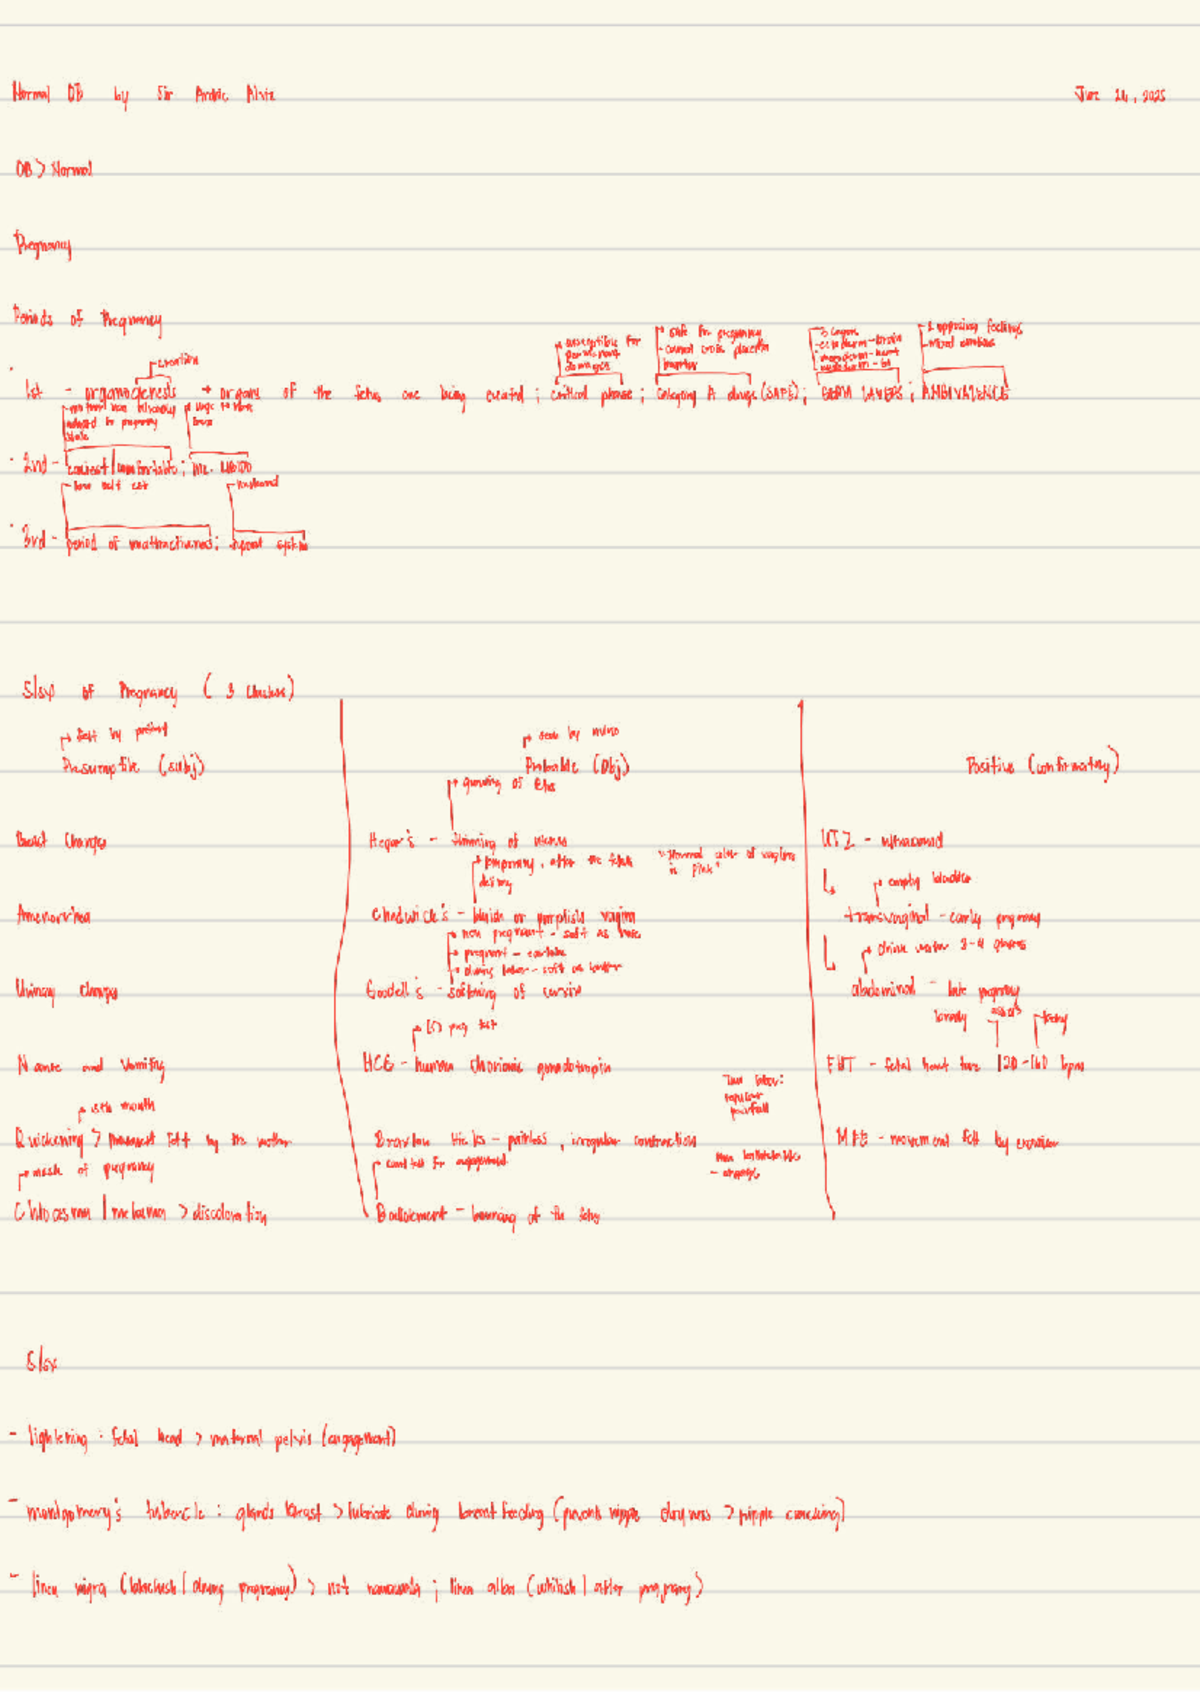 Normal OB by Sir Archie Alviz
June 26, 2025
OB > Normal
Pregnancy
Periods of Pregnancy
creation
susceptible for permanent damages
safe for pregnancy
- cannot cross placenta barrier
3 layers
- ectoderm - brain
mesoderm - heart
- 2 opposing feelings
- mixed emotions
1st - organogenesis → organs of the fetus are being created ; critical phase ; Category A drugs (SAFE) ; GERM LAYERS ; AMBIVALENCE
adjusted to pregnancy state
2nd - easiest / comfortable ;
- low self est
- husband
3rd - period of unattractiveness ; support system
S/sx of Pregnancy ( 3 Clusters)
felt by patient
seen by
Presumptive (subj)
Probable (Obj)
Positive (confirmatory)
Breast Changes
Hegar's - thinning of uterus
UTZ - ultrasound
temporary, after the fetus delivery
"Normal color of vagina is pink"
empty bladder
Amenorrhea
Chadwick's - bluish or purplish vagina
transvaginal - early pregnancy
non pregnant - soft as nose
pregnant - earlobe
during labor - soft as butter
drink water 3-4 glasses
Urinary changes
Goodell's - softening of cervix
abdominal - late pregnancy
(+) preg test
Nausea and Vomiting
HCG - human chorionic gonadotropin
FHT - fetal heart tone 120-160 bpm
True labor: regular painful
5th month
Quickening > movement felt by the mother
Braxton Hicks - painless, irregular contraction
MFE - movement felt by examiner
mask of pregnancy
Chloasma / melasma > discoloration
Ballotement - bouncing of the fetus
S/sx
- lightening : fetal head > maternal pelvis (engagement)
- montgomery's tubercle : glands breast > lubricate during breastfeeding (prevents nipple dryness > nipple cracking)
- linea nigra (blackish / during pregnancy) > not removable ; linea alba (whitish / after pregnancy)